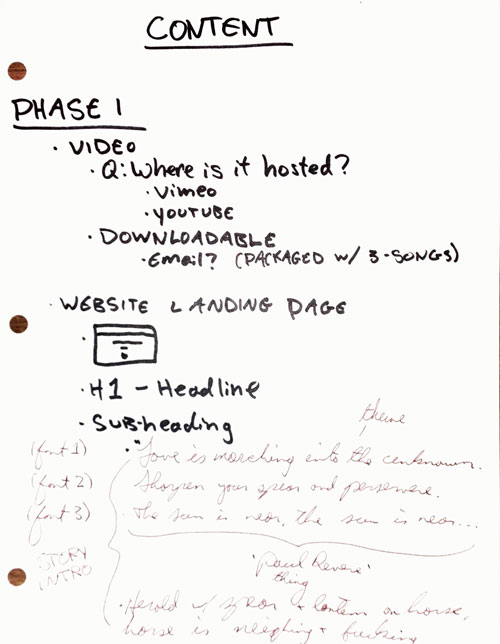 CONTENT
PHASE 1
· VIDEO
· Q: Where is it hosted?
· Vimeo
· YOUTUBE
· DOWNLOADABLE
· Email? (PACKAGED w/ 3-SONGS)
· WEBSITE LANDING PAGE
· H1 - Headline
· SUB-heading
theme
(font 1) · "Love is marching into the unknown.
(font 2) Sharpen your spear and persevere.
(font 3) · The sun is near, the sun is near...
STORY
INTRO
'Paul Revere'
thing
· Herold w/ spear + lantern on horse,
horse is neighing +